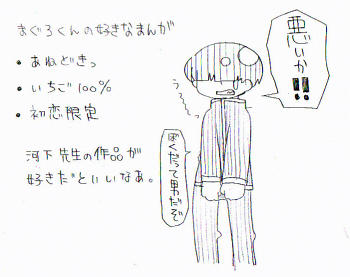 まぐろくんの好きなまんが
・あねどきっ
・いちご100%
・初恋限定
河下先生の作品が
好きだといいなあ。
悪いか!!
うろ〜っ
ぼくだって男だぞ